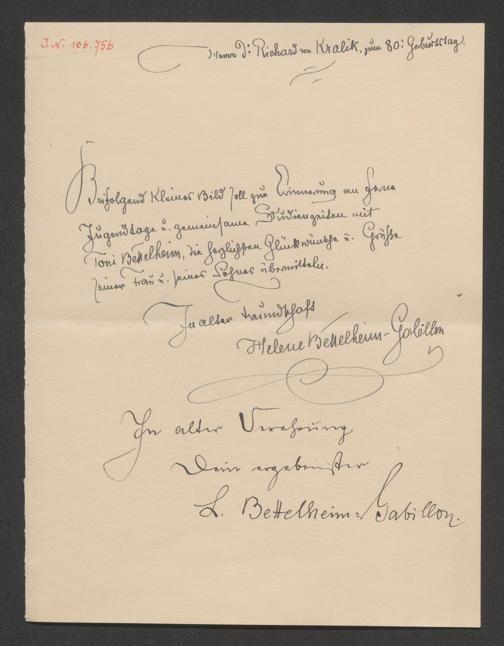 I.N. 106.756
Herrn Dr. Richard von Kralik, zum 80. Geburtstag.
Beifolgend kleines Bild soll zur Erinnerung an ferne
Jugendtage u. gemeinsame Studienzeiten mit
Toni Bettelheim, die herzlichsten Glückwünsche u. Grüße
seiner Frau u. seines Sohnes übermitteln.
In alter Freundschaft
Helene Bettelheim-Gabillon
In alter Verehrung
Dein ergebenster
L. Bettelheim-Gabillon.